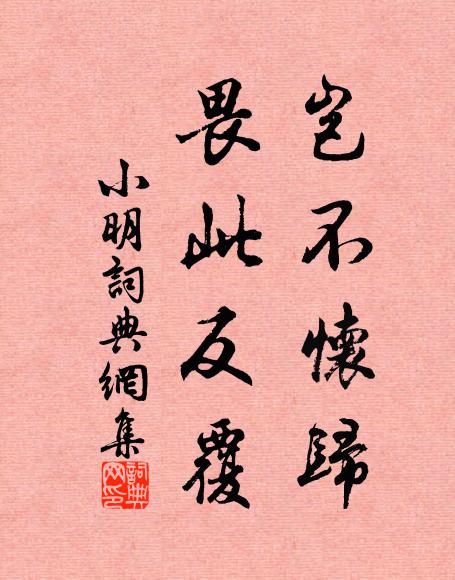 豈不懷歸
畏此反覆
小明詞典網集
詞典
网印